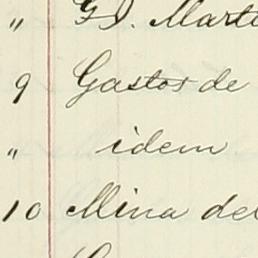 " G. I. Mart
9 Gastos de
" idem
10 Mina del